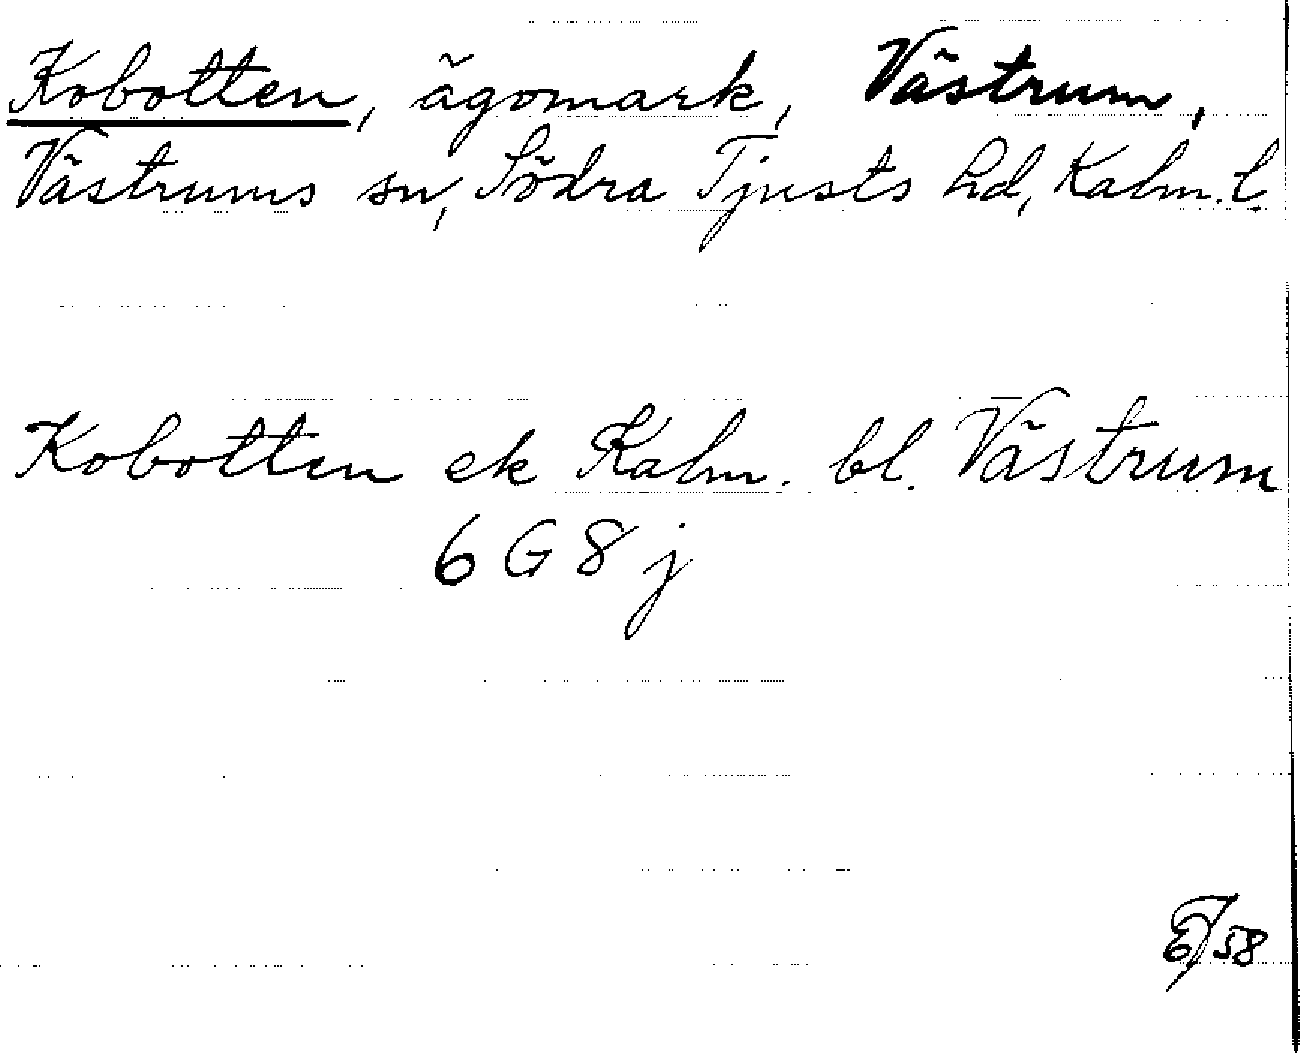 Kobotten, ägomark, Västrum,
Västrums sn, Södra Tjusts hd, Kalm. l.
Kobotten ek Kalm. bl. Västrum
6 G 8 j
/58